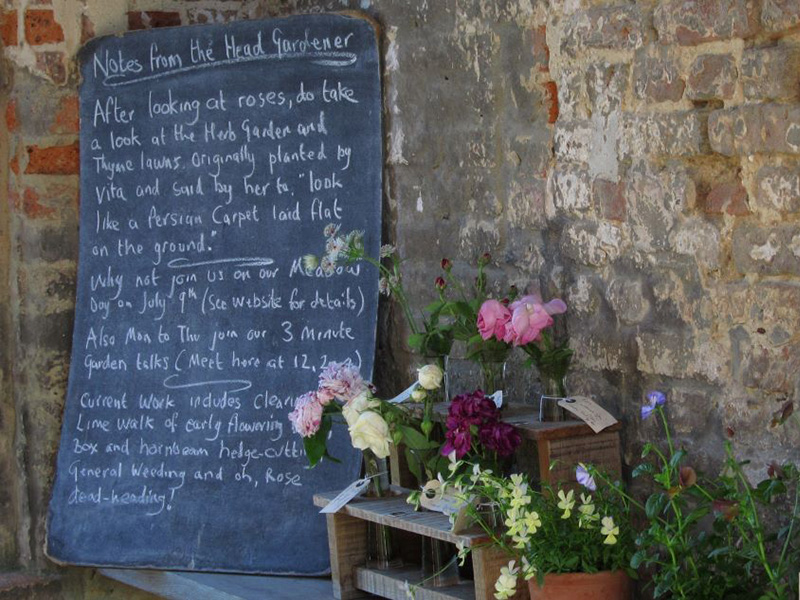 Notes from the Head Gardener
After looking at roses, do take
a look at the Herb Garden and
Thyme lawns. Originally planted by
Vita and said by her to, "look
like a Persian Carpet laid flat
on the ground."
Why not join us on our Meadow
Day on July 9th (see website for details)
Also Mon to Thu join our 3 minute
garden talks (Meet here at 12,
Current work includes
Lime walk of early flowering
Box and hornbeam
General Weeding and oh, Rose
dead-heading!